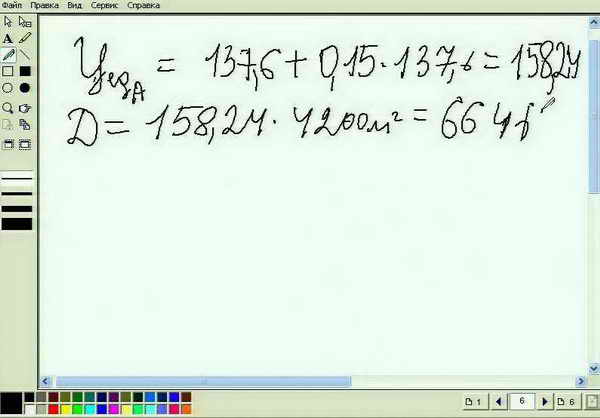 Файл Правка Вид Сервис Справка
Цед A = 137,6 + 0,15 · 137,6 = 158,24
D = 158,24 · 4200 м² = 664
A
1 6 6